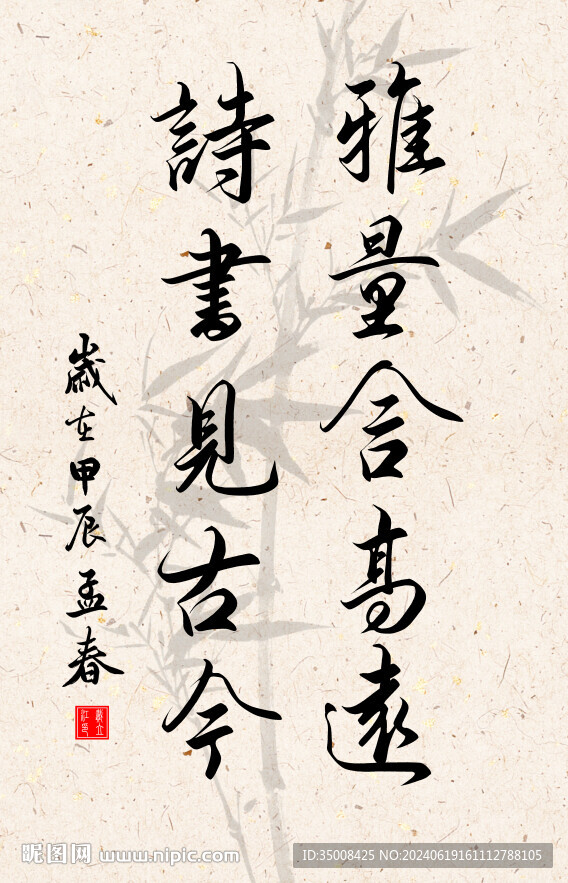 雅量含高遠
詩書見古今
歲在甲辰孟春
昵图网 www.nipic.com
ID:35008425 NO:20240619161112788105